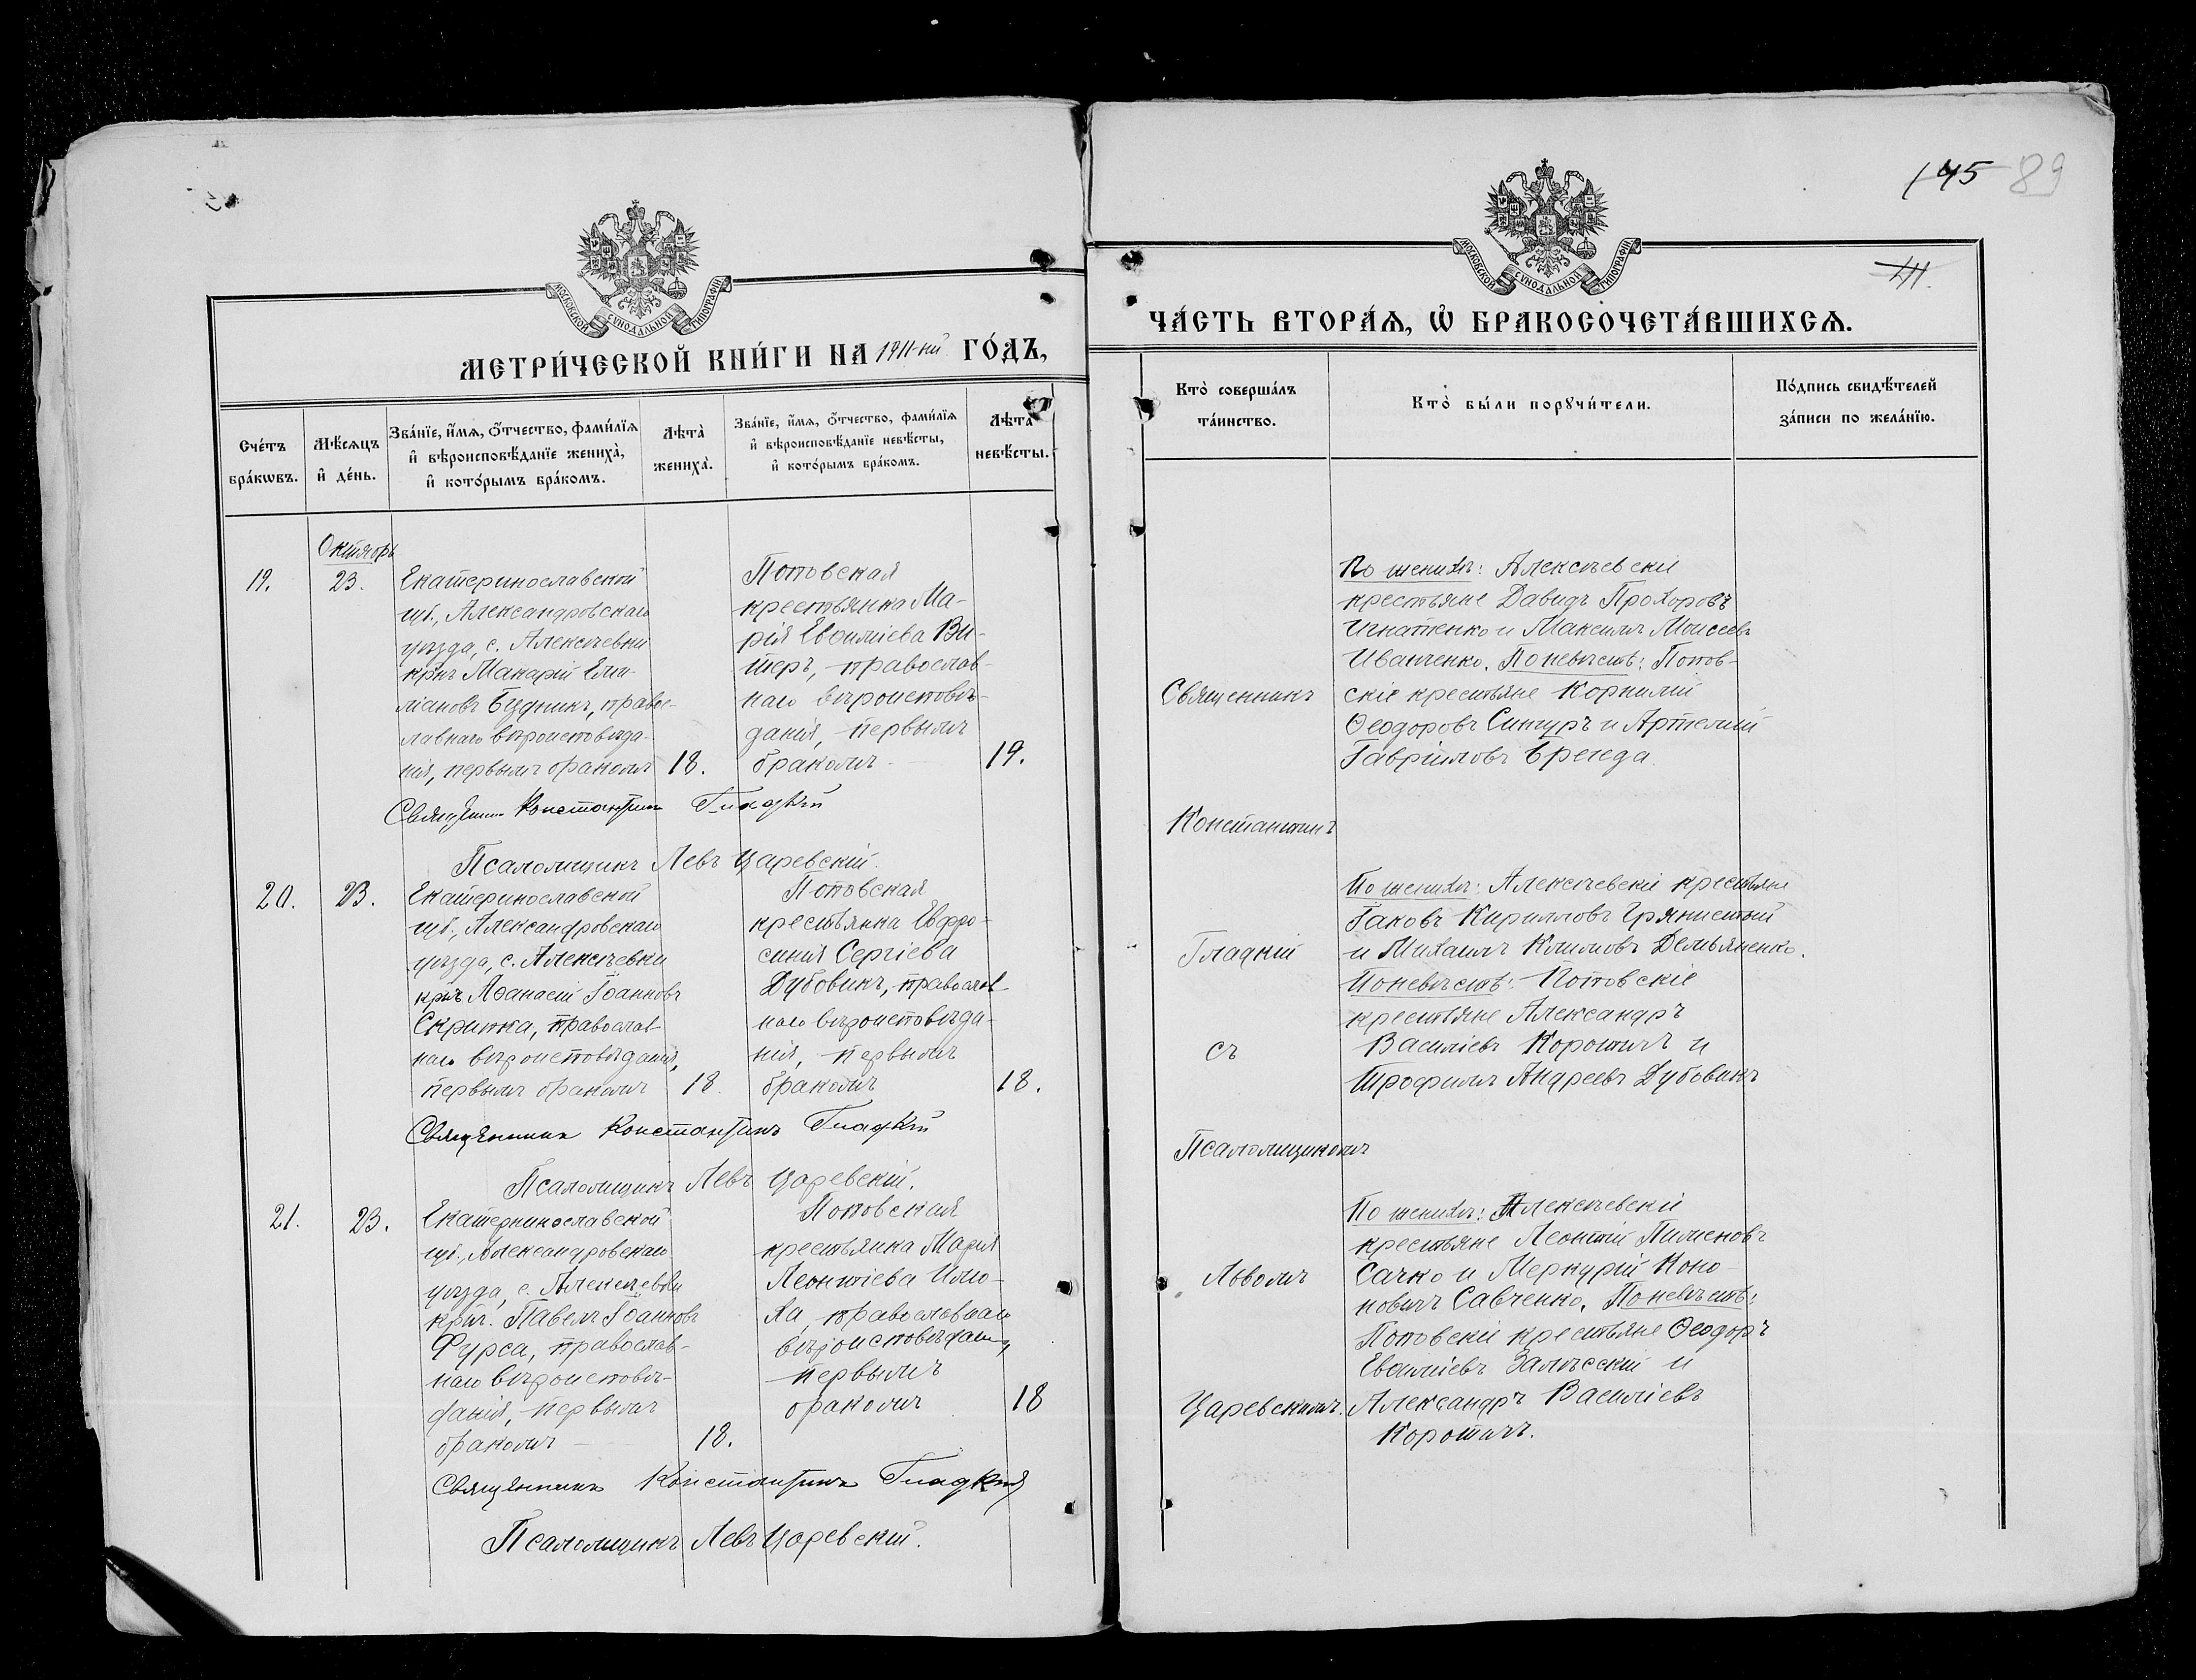 МОСКОВСКОЙ СУНОДАЛЬНОЙ ТИПОГРАФІИ
МЕТРИ́ЧЕСКОЙ КНИ́ГИ НА 1911-ый ГО́ДЪ,
Сче́тъ бра́кѡвъ.
Мѣ́сяцъ и҆ де́нь.
Зва́нїе, и҆́мѧ, ѻ҆́тчество, фами́лїѧ
и҆ вѣроисповѣ́данїе жениха̀,
и҆ кото́рымъ бра́комъ.
Лѣта̀ жениха̀.
Зва́нїе, и҆́мѧ, ѻ҆́тчество, фами́лїѧ
и҆ вѣроисповѣ́данїе невѣ́сты,
и҆ кото́рымъ бра́комъ.
Лѣта̀ невѣ́сты.
Октябрь
19.
23.
Екатеринославской
губ., Александровскаго
уѣзда, с. Алексѣевки
крн҃ъ Макарій Еми-
ліановъ Будникъ, правос-
лавнаго вѣроисповѣда-
нія, первымъ бракомъ
18.
Поповская
крестьянка Ма-
рія Евѳиміева Ви-
теръ, православ-
наго вѣроисповѣ-
данія, первымъ
бракомъ
19.
Священникъ Константинъ Гладкій
Псаломщикъ Левъ Царевскій.
20.
23.
Екатеринославской
губ., Александровскаго
уѣзда, с. Алексѣевки
крн҃ъ Аѳанасій Іоанновъ
Скрипка, православ-
наго вѣроисповѣданія,
первымъ бракомъ
18.
Поповская
крестьянка Евфро-
синія Сергіева
Дубовикъ, православ-
наго вѣроисповѣда-
нія, первымъ
бракомъ
18.
Священникъ Константинъ Гладкій
Псаломщикъ Левъ Царевскій.
21.
23.
Екатеринославской
губ., Александровскаго
уѣзда, с. Алексѣевки
крн҃ъ. Павелъ Іоанновъ
Фурса, православ-
наго вѣроисповѣ-
данія, первымъ
бракомъ
18.
Поповская
крестьянка Марія
Леонтіева
православнаго
вѣроисповѣданія,
первымъ
бракомъ
18
Священникъ Константинъ Гладкій
Псаломщикъ Левъ Царевскій.
145 89
МОСКОВСКОЙ СУНОДАЛЬНОЙ ТИПОГРАФІИ
ЧА́СТЬ ВТОРА́Ѧ, Ѡ҆ БРАКОСОЧЕТА́ВШИХСѦ.
Кто̀ соверша́лъ
та́инство.
Кто̀ бы́ли порꙋчи́тели.
По́дпись свидѣ́телей
за́писи по жела́нїю.
Священникъ
Константинъ
Гладкій
съ
Псаломщикомъ
Львомъ
Царевскимъ.
По женихѣ: Алексѣевскіе
крестьяне Давидъ Прохоровъ
Игнатенко и Максимъ Моисеевъ
Иванченко. По невѣстѣ: Попов-
скіе крестьяне Корнилій
Ѳеодоровъ Синчуръ и Артемій
Гавріиловъ Бренда
По женихѣ: Алексѣевскіе крестьяне
Іаковъ Кирилловъ
и Михаилъ Климовъ Демьяненко.
По невѣстѣ: Поповскіе
крестьяне Александръ
Василіевъ Коротичъ и
Трофимъ Андреевъ Дубовикъ
По женихѣ: Алексѣевскіе
крестьяне Леонтій Пименовъ
Сачко и Меркурій Коно-
новичъ Савченко. По невѣстѣ:
Поповскіе крестьяне Ѳеодоръ
Евѳиміевъ Залѣсскій и
Александръ Василіевъ
Коротичъ.